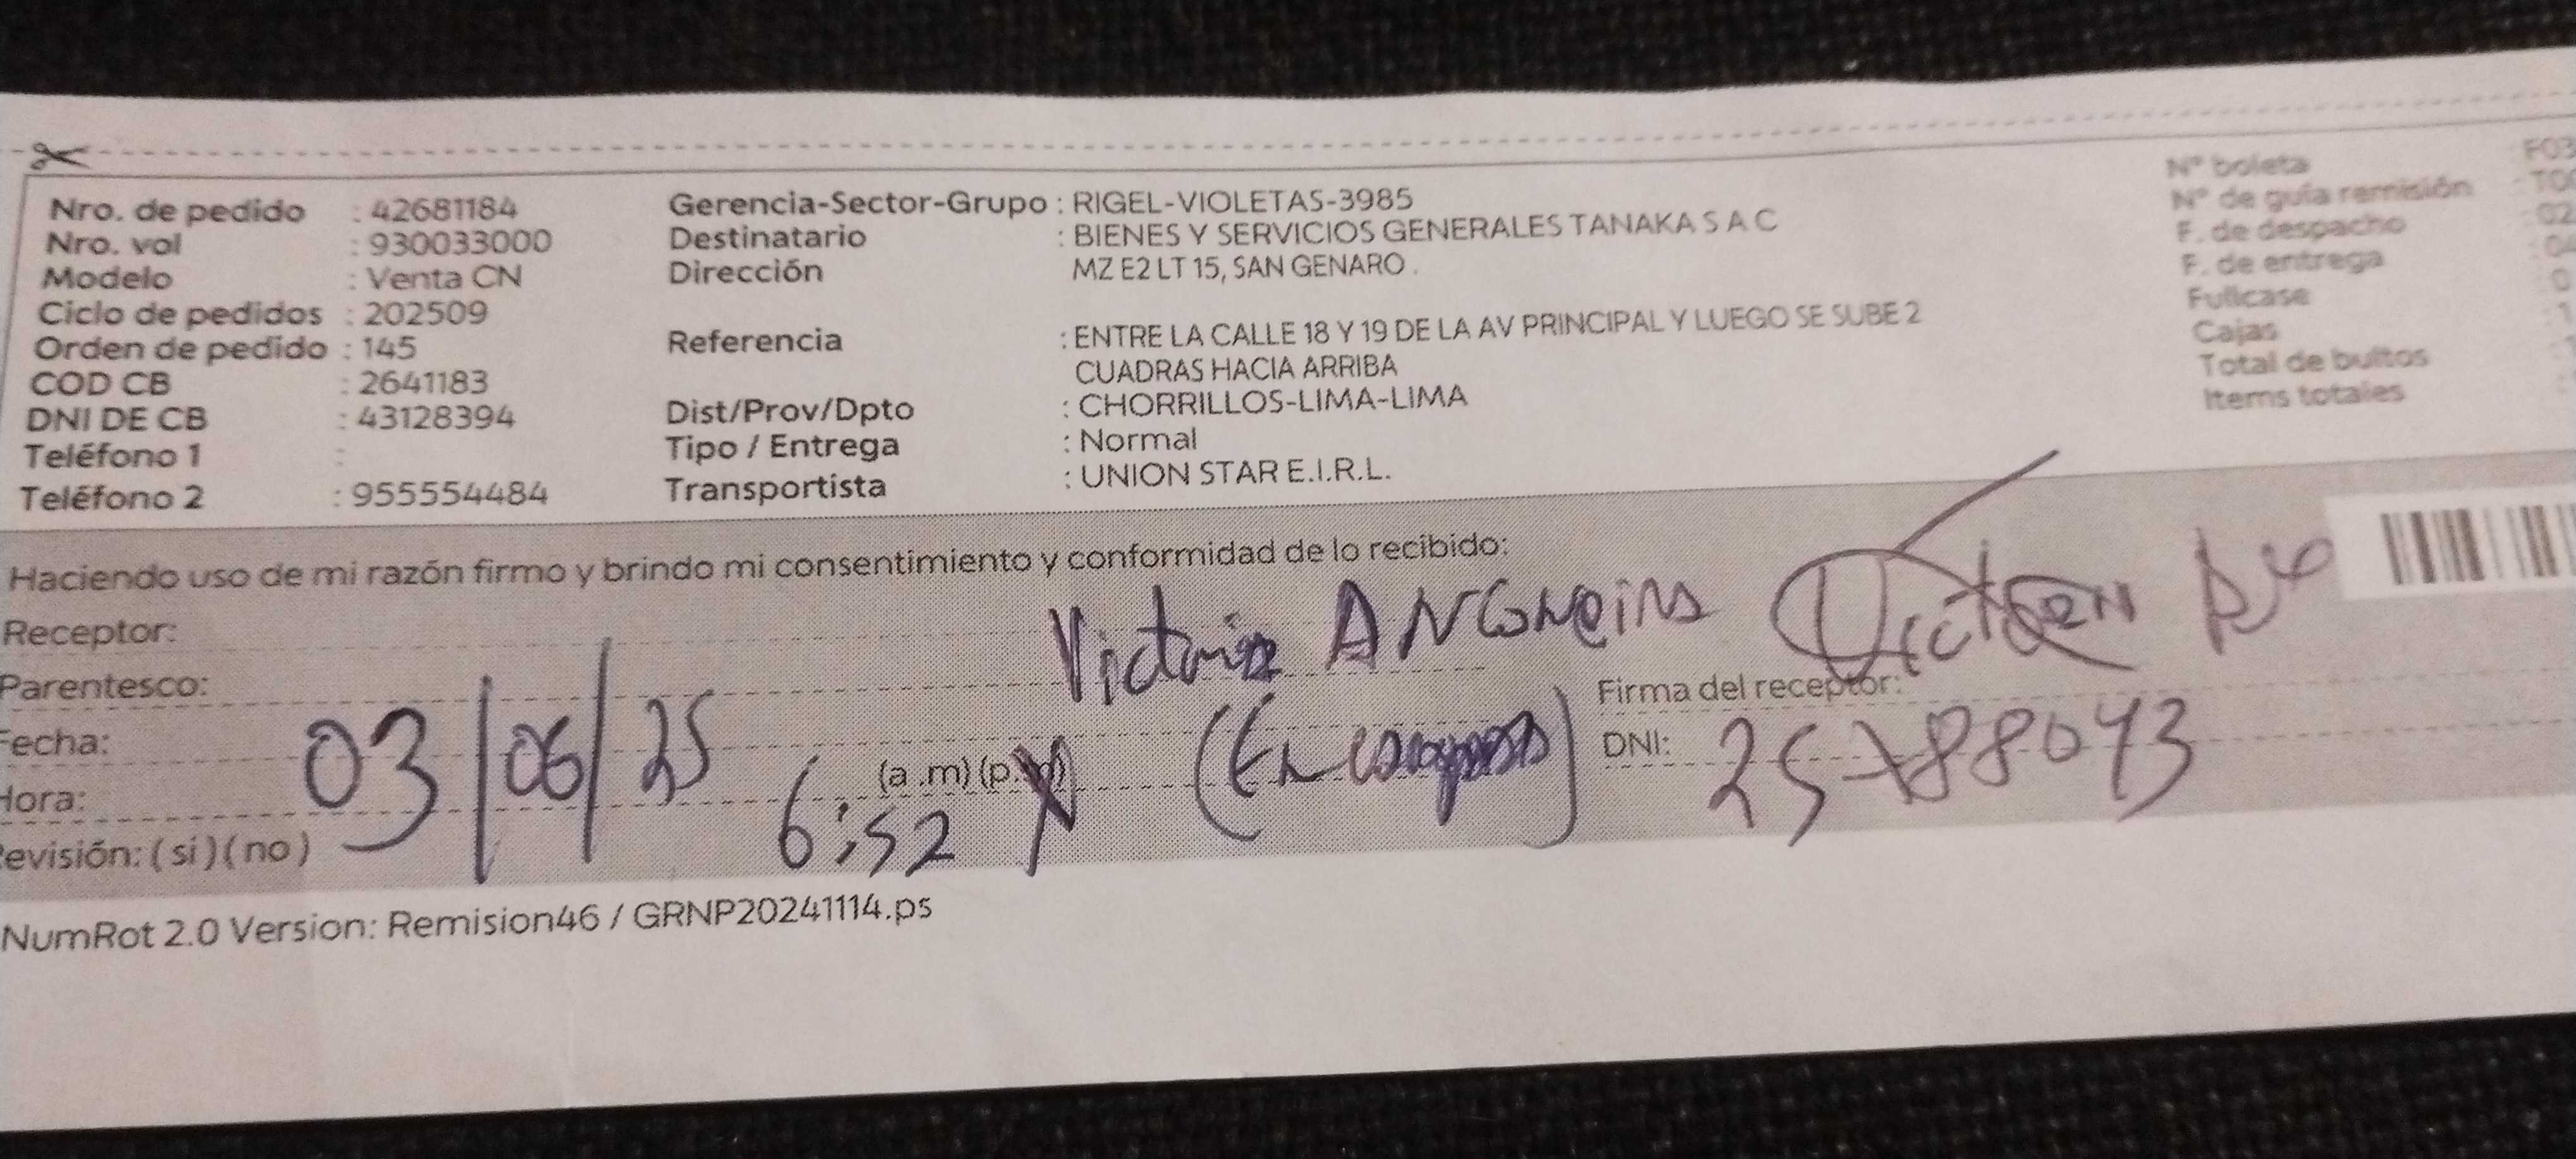 Nro. de pedido : 42681184
Nro. vol : 930033000
Modelo : Venta CN
Ciclo de pedidos : 202509
Orden de pedido : 145
COD CB : 2641183
DNI DE CB : 43128394
Teléfono 1 :
Teléfono 2 : 955554484
Gerencia-Sector-Grupo : RIGEL-VIOLETAS-3985
Destinatario : BIENES Y SERVICIOS GENERALES TANAKA S A C
Dirección MZ E2 LT 15, SAN GENARO .
Referencia : ENTRE LA CALLE 18 Y 19 DE LA AV PRINCIPAL Y LUEGO SE SUBE 2
CUADRAS HACIA ARRIBA
Dist/Prov/Dpto : CHORRILLOS-LIMA-LIMA
Tipo / Entrega : Normal
Transportista : UNION STAR E.I.R.L.
N° boleta F03
N° de guía remisión
F. de despacho : 02
F. de entrega
Fullcase
Cajas
Total de bultos
Items totales
Haciendo uso de mi razón firmo y brindo mi consentimiento y conformidad de lo recibido:
Receptor: Victoria
Parentesco:
Firma del receptor:
Fecha: 03/06/25
DNI: 25788043
Hora: 6:52 (a .m) (p.m)
Revisión: ( si ) ( no )
NumRot 2.0 Version: Remision46 / GRNP20241114.ps